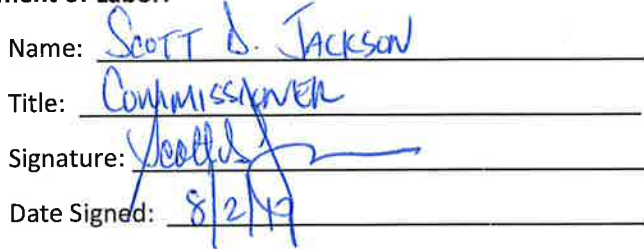 ment of Labor:
Name: SCOTT D. JACKSON
Title: COMMISSIONER
Signature:
Date Signed: 8/2/19